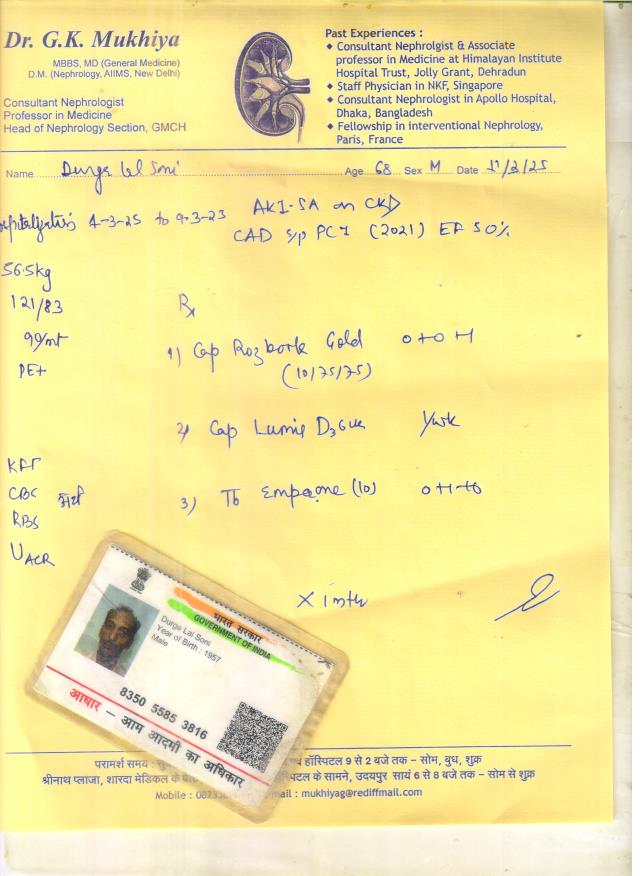 Dr. G.K. Mukhiya
MBBS, MD (General Medicine)
D.M. (Nephrology, AIIMS, New Delhi)
Consultant Nephrologist
Professor in Medicine
Head of Nephrology Section, GMCH
Past Experiences :
Consultant Nephrolgist & Associate
professor in Medicine at Himalayan Institute
Hospital Trust, Jolly Grant, Dehradun
Staff Physician in NKF, Singapore
Consultant Nephrologist in Apollo Hospital,
Dhaka, Bangladesh
Fellowship in interventional Nephrology,
Paris, France
Name Durga Lal Soni Age 68 Sex M Date /3/25
4-3-25 to 9-3-25 AKI-SA on CKD
CAD s/p PCI (2021) EF 50%
56.5kg
121/83
99/mt
PE+
Rx
1) Cap Rozbork Gold 0+0+1
(10/75/75)
2) Cap Lumie D3 60k
3) Tb (10)
KFT
CBC
RBS
UACR
X 1 mth
भारत सरकार
GOVERNMENT OF INDIA
Durga Lal Soni
Year of Birth : 1957
Male
8350 5585 3816
आधार – आम आदमी का अधिकार
परामर्श समय : हॉस्पिटल 9 से 2 बजे तक – सोम, बुध, शुक्र
श्रीनाथ प्लाजा, शारदा मेडिकल के के सामने, उदयपुर सायं 6 से 8 बजे तक – सोम से शुक्र
Mobile : mukhiyag@rediffmail.com